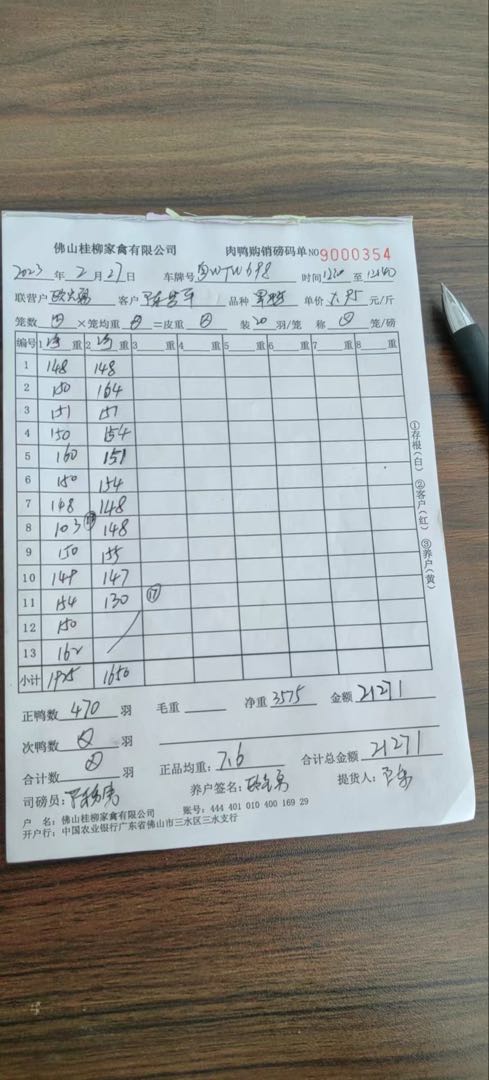 佛山桂柳家禽有限公司 肉鸭购销磅码单 NO 9000354
2023 年 2 月 27 日 车牌号 WTW698 时间 至
联营户 客户 品种 单价 5.95 元/斤
笼数 ×笼均重 =皮重 装 20 羽/笼 称 笼/磅
编号 1 重 2 重 3 重 4 重 5 重 6 重 7 重 8 重
1 148 148
2 150 164
3 151 151
4 150 154
5 160 151
6 150 154
7 148 148
8 103 148
9 150 155
10 149 147
11 154 130 ⑰
12 150
13 162
小计 1925 1650
正鸭数 470 羽 毛重 净重 3575 金额 21271
次鸭数 羽
合计数 羽 正品均重: 7.6 合计总金额 21271
司磅员: 养户签名: 提货人:
户 名: 佛山桂柳家禽有限公司 账号: 444 401 010 400 169 29
开户行: 中国农业银行广东省佛山市三水区三水支行
①存根(白) ②客户(红) ③养户(黄)